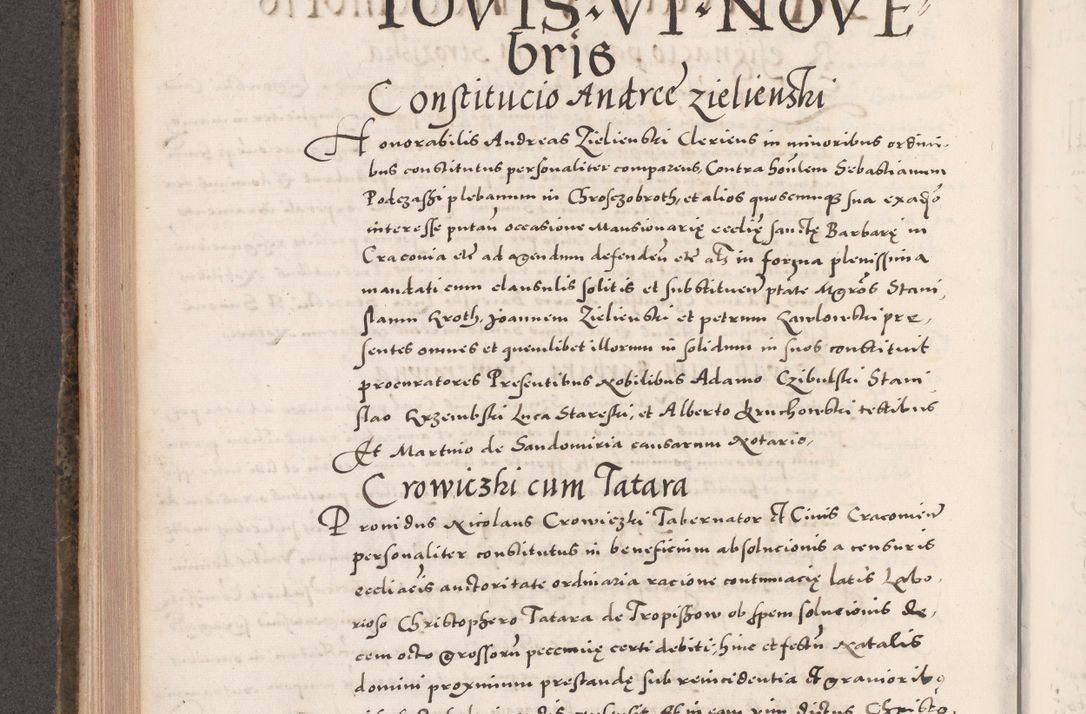 IOVIS · VI · NOVE
bris
Constitucio Andree Zielienski
Honorabilis Andreas Zielienski Clericus in minoribus ordini,
bus constitutus personaliter comparens, Contra honlem Sebastianum
Podczaszki plebanum in Chrosczobroth, et alios quoscunq sua
interesse putan occasione Mansionarię ecclię sanctę Barbarę in
Craconia etc ad agendum defenden etc als in forma plenissima
mandati cum clausulis solitis et substituen ptate Mgros Stani,
slaum Kroth, Joannem Zielienski et petrum Kawlowski pre,
sentes omnes et quemlibet illorum in solidum in suos constituit
procuratores Presentibus Nobilibus Adamo Czibulski Stani
slao Krzembski Luca Stareski, et Alberto Kruchowski testibus
Et Martino de Sandomiria causarum Notario,
Crowiczki cum Tatara
Prouidus Nicolaus Crowiczki Tabernator et Ciuis Cracouien
personaliter constitutus in beneficium absolucionis a censuris
ecclıacis auctoritate ordinaria racione contumacię latis Labo,
rioso Christophero Tatara de Tropiszow ob spem solucionis de,
cem octo grossoru pecunię certi debiti, hinc et festu Natalis
domini proximum prestandę sub reincidentia et graviorib9
dictus Christo,